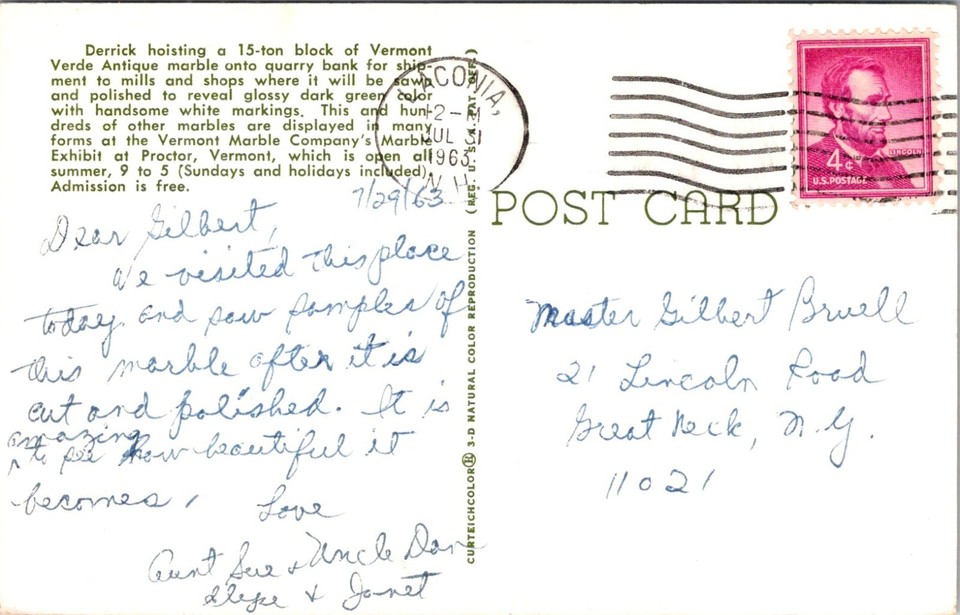 Derrick hoisting a 15-ton block of Vermont
Verde Antique marble onto quarry bank for ship-
ment to mills and shops where it will be sawn
and polished to reveal glossy dark green color
with handsome white markings. This and hun-
dreds of other marbles are displayed in many
forms at the Vermont Marble Company's Marble
Exhibit at Proctor, Vermont, which is open all
summer, 9 to 5 (Sundays and holidays included).
Admission is free.
7/29/63
Dear Gilbert,
We visited this place
today and saw samples of
this marble after it is
cut and polished. It is
amazing
to see how beautiful it
becomes.
Love
Aunt Sue & Uncle Dan
& Janet
CURTEICHCOLOR® 3-D NATURAL COLOR REPRODUCTION (REG. U.S.A. PAT. OFF.)
LACONIA,
JUL 31
1963
N.H.
POST CARD
LINCOLN
4¢
U.S. POSTAGE
Master Gilbert Bruell
21 Lincoln Road
Great Neck, N.Y.
11021